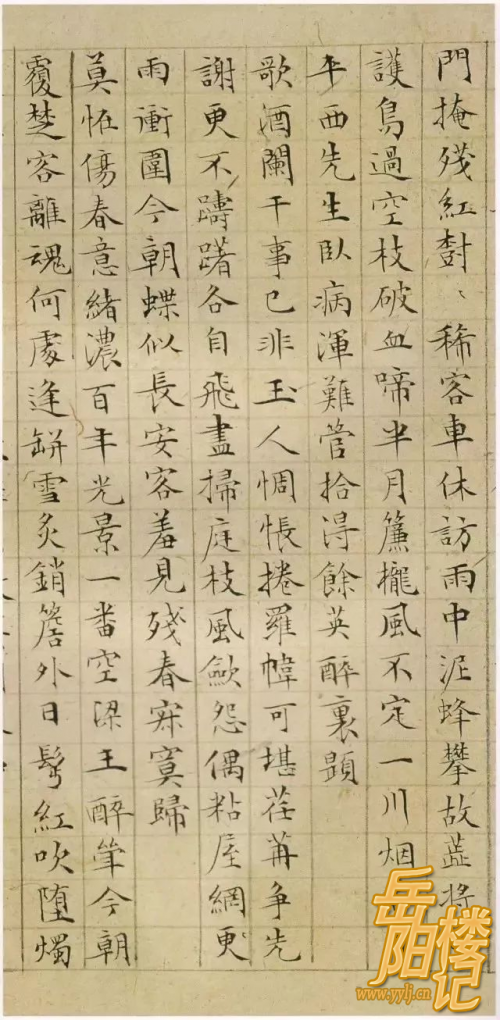 門掩殘紅樹〻稀客車休訪雨中泥蜂攀故蕋將
護鳥過空枝破血啼半月簾櫳風不定一川烟
平西先生臥病渾難管拾得餘英醉裏題
歌酒闌干事已非玉人惆悵捲羅幃可堪荏苒爭先
謝更不躊躇各自飛盡掃庭枝風歛怨偶粘屋網更
雨衝圍今朝蝶似長安客羞見殘春寂寞歸
莫恠傷春意緒濃百年光景一番空梁王醉筆今朝
覆楚客離魂何處逢缾雪炙銷簷外日髩紅吹堕燭
岳阳楼记
www.yylj.cn